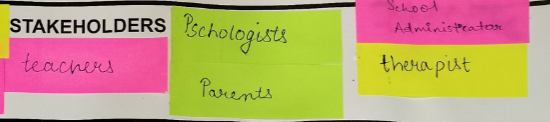 STAKEHOLDERS
teachers
Pschologists
Parents
School
Administrator
therapist